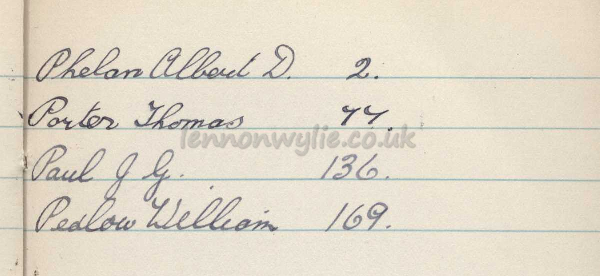 Phelan Albert D. 2.
Porter Thomas 77.
lennonwylie.co.uk
Paul J G. 136.
Pedlow William 169.